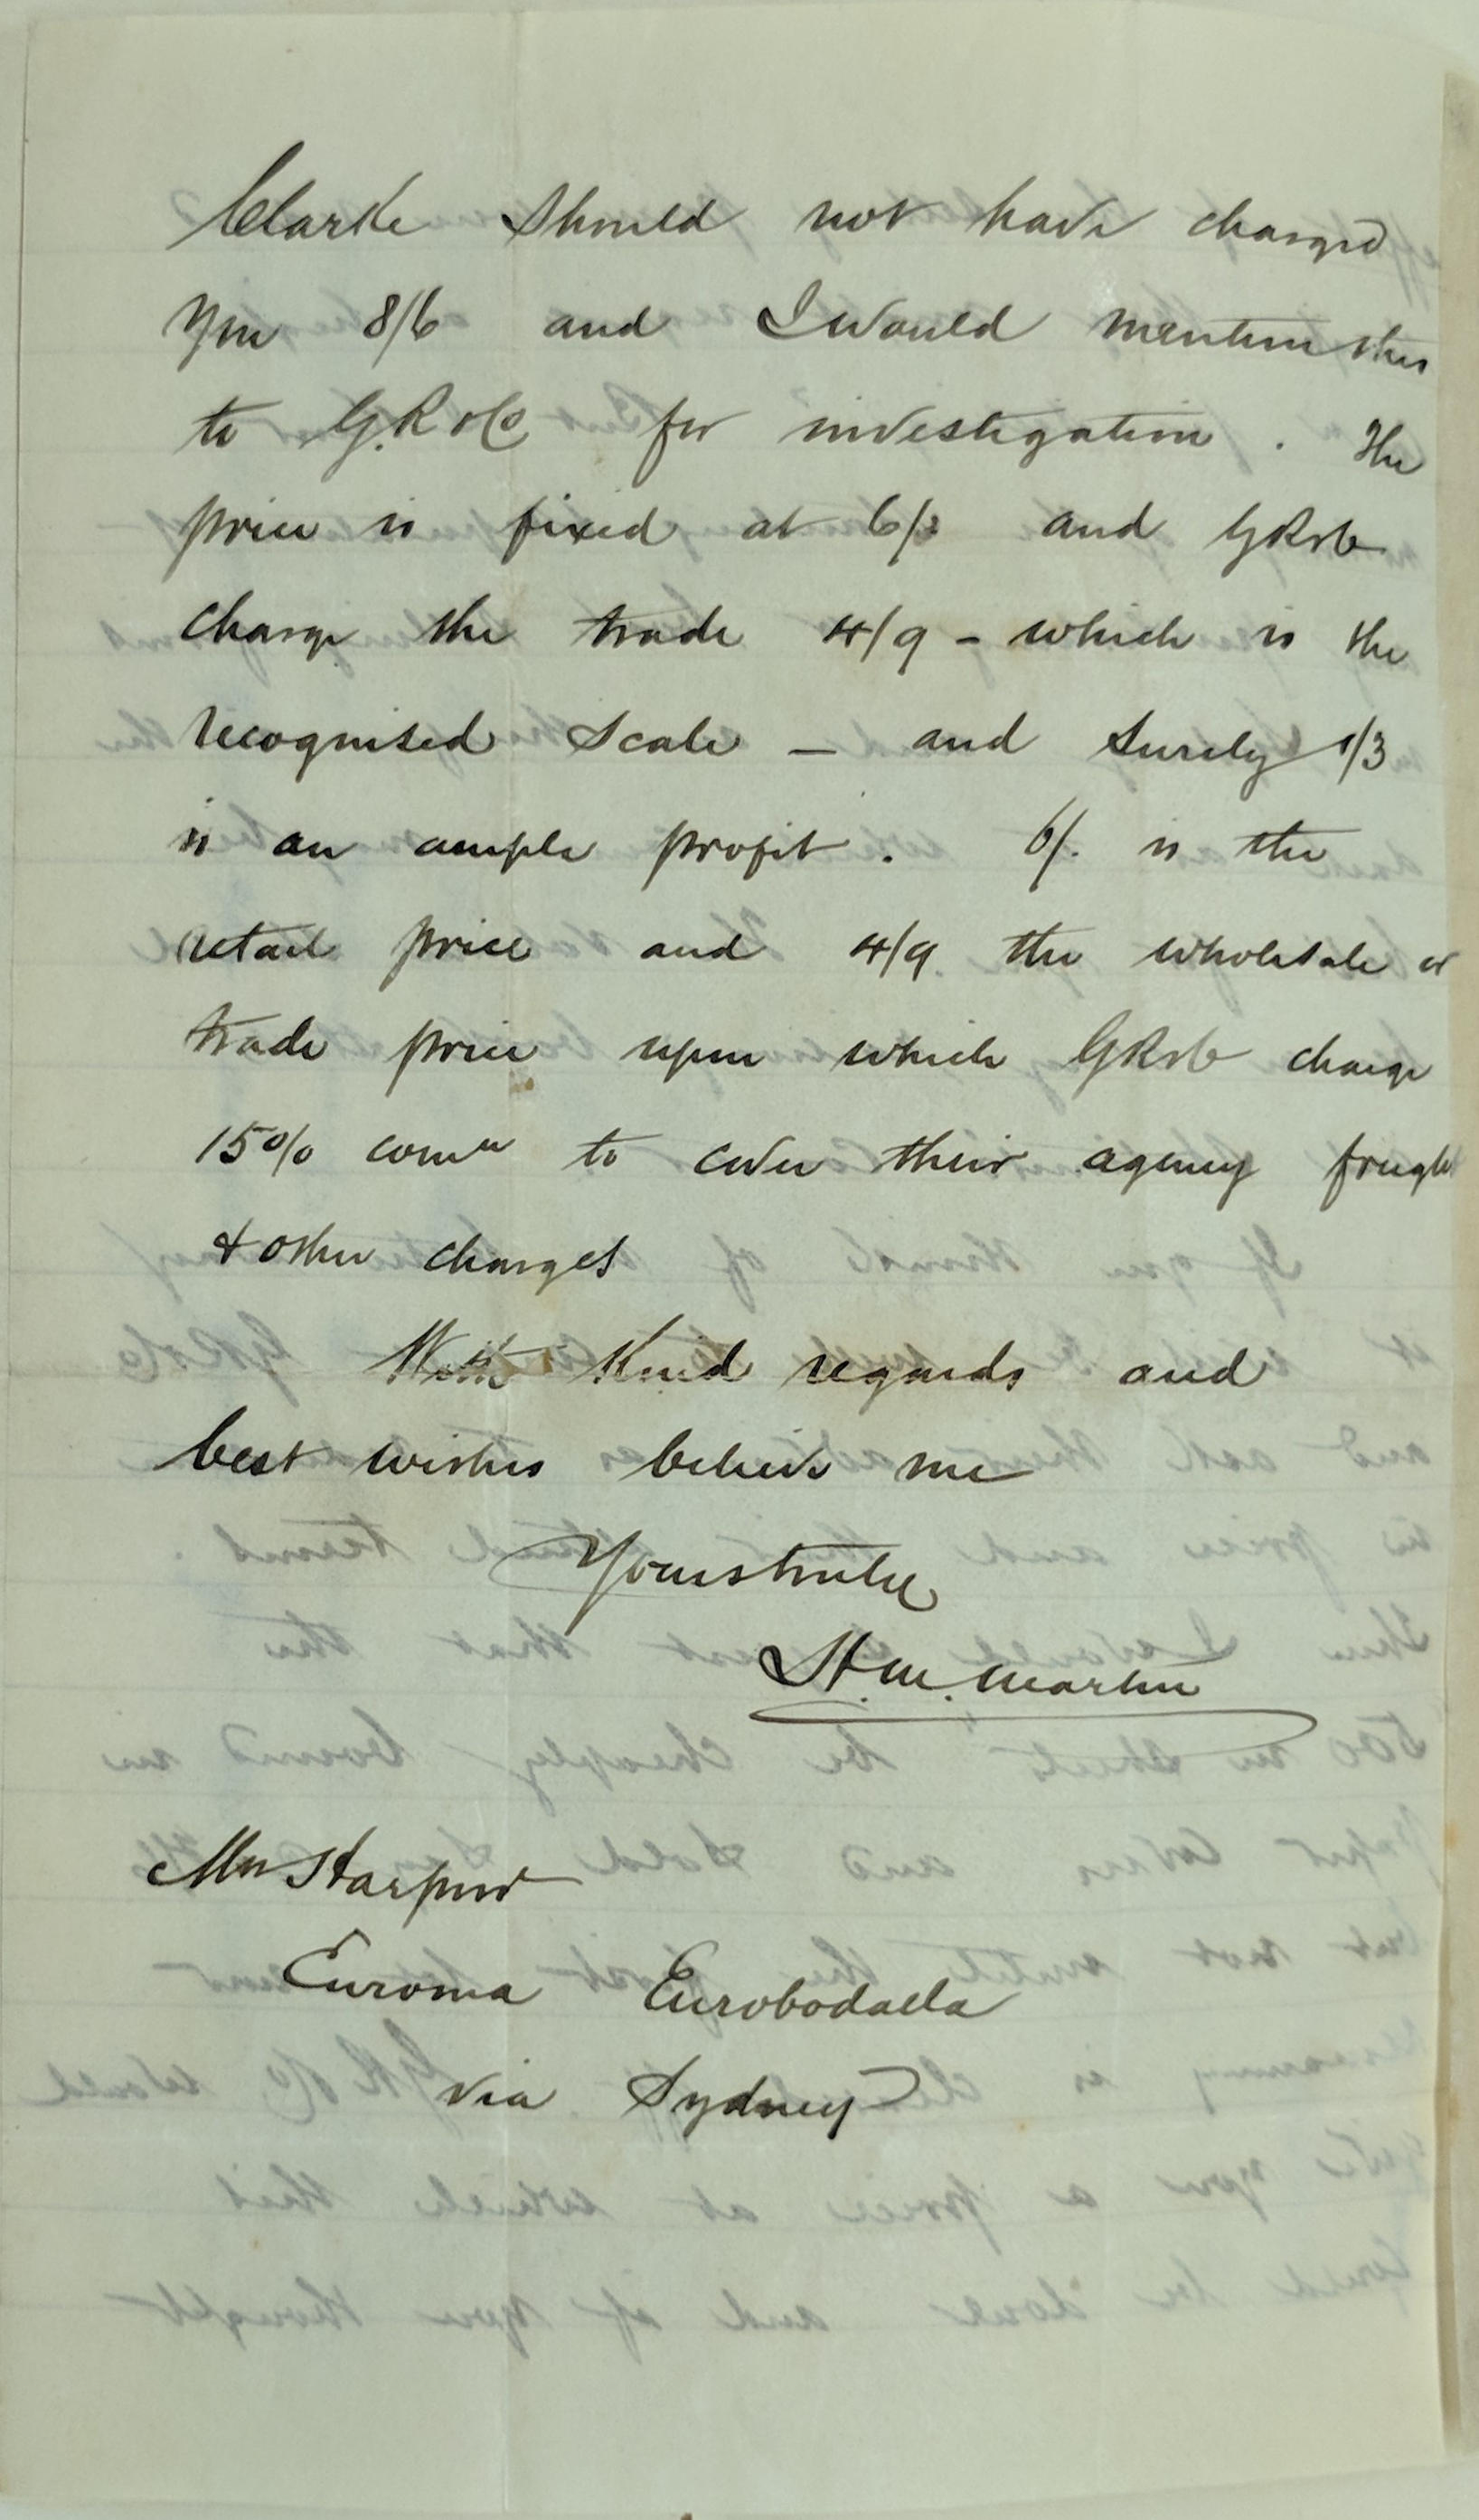 Clarke should not have charged
you 8/6 and I would mention this
to G.R & Co for investigation. The
price is fixed at 6/. and GR&Co
charge the trade 4/9 - which is the
recognised scale - and surely 1/3
is an ample profit. 6/. is the
retail price and 4/9 the wholesale or
trade price upon which GR&Co charge
15% comn to cover their agency freight
& other charges
With kind regards and
best wishes believe me
Yours truly
H. W. Martin
Mrs Harpur
Euroma Eurobodalla
via Sydney